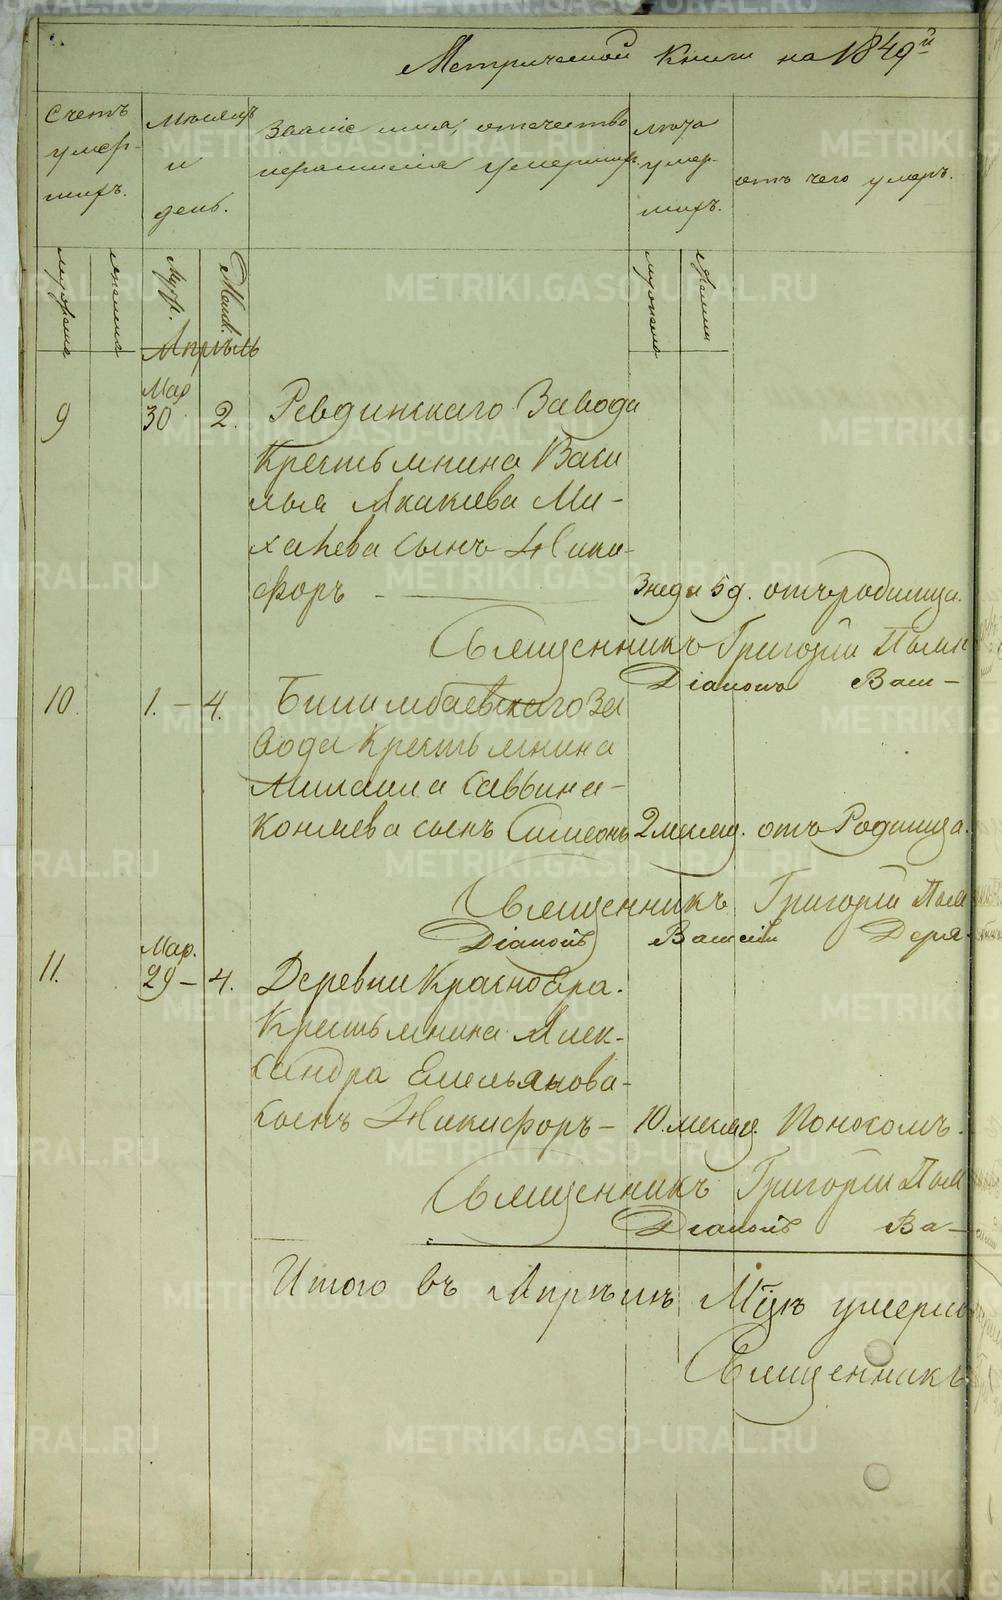 Метрической Книги на 1849й
Счетъ умер-шихъ.
Месяцъ и день.
Званіе имя, отечество и фамилія умершихъ.
лета умер-шихъ.
отъ чего умеръ.
мужеска
женска
Мужеска
женска
Апрель
9 Мар 30 2. Ревдинскаго Завода
Крестьянина Васи
лья Акакіева Ми-
халева сынъ Ники-
форъ - 3 неде 5 д. отъ родимца.
Священникъ Григорій
Діаконъ
10. 1. - 4. Билимбаевскаго За
вода Крестьянина
Михаила Саввина
Коняева сынъ Симеонъ 2 месяц. отъ Родимца.
Священникъ Григорій
Діаконъ Василій
11. Мар. 29 - 4. Деревни Красноера.
Крестьянина Алек-
сандра Емельянова-
сынъ Никифоръ - 10. месяц. Поносомъ.
Священникъ Григорій
Діаконъ Ва-
Итого въ Апреле Мцѣ умерло
Священникъ
METRIKI.GASO-URAL.RU